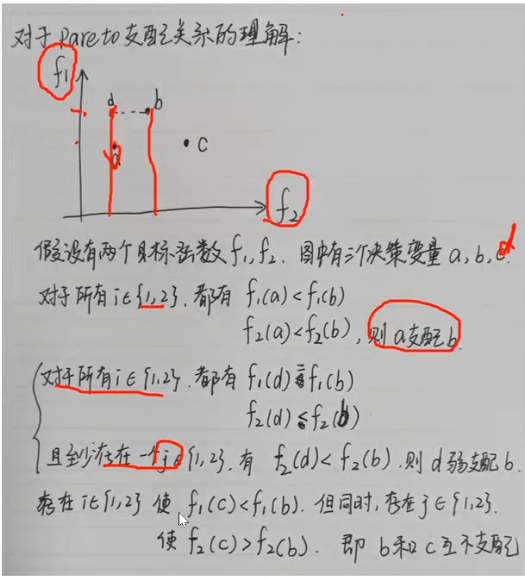 对于Pareto支配关系的理解:
f₁
d
b
a
c
f₂
假设有两个目标函数f₁,f₂. 图中有三个决策变量a,b,c.d
对于所有i∈{1,2}, 都有 f₁(a)<f₁(b)
f₂(a)<f₂(b), 则a支配b.
对于所有i∈{1,2}, 都有 f₁(d)≤f₁(b)
f₂(d)≤f₂(b)
且至少存在一个j∈{1,2}, 有 f₂(d)<f₂(b). 则d弱支配b.
存在i∈{1,2} 使 f₁(c)<f₁(b). 但同时, 存在j∈{1,2}.
使 f₂(c)>f₂(b). 即 b和c互不支配